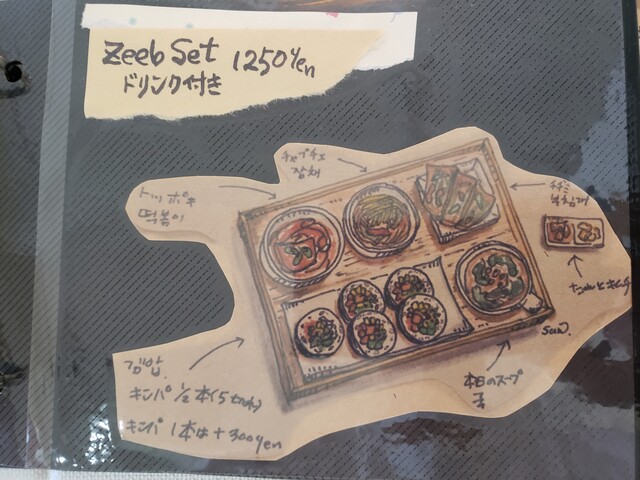 Zeeb Set 1250yen
ドリンク付き
チャプチェ
잡채
トッポキ
떡볶이
チヂミ
부침개
ナムルとキムチ
김밥
キンパ 1/2本(5切れ)
キンパ 1本は+300yen
本日のスープ
국
Sun.